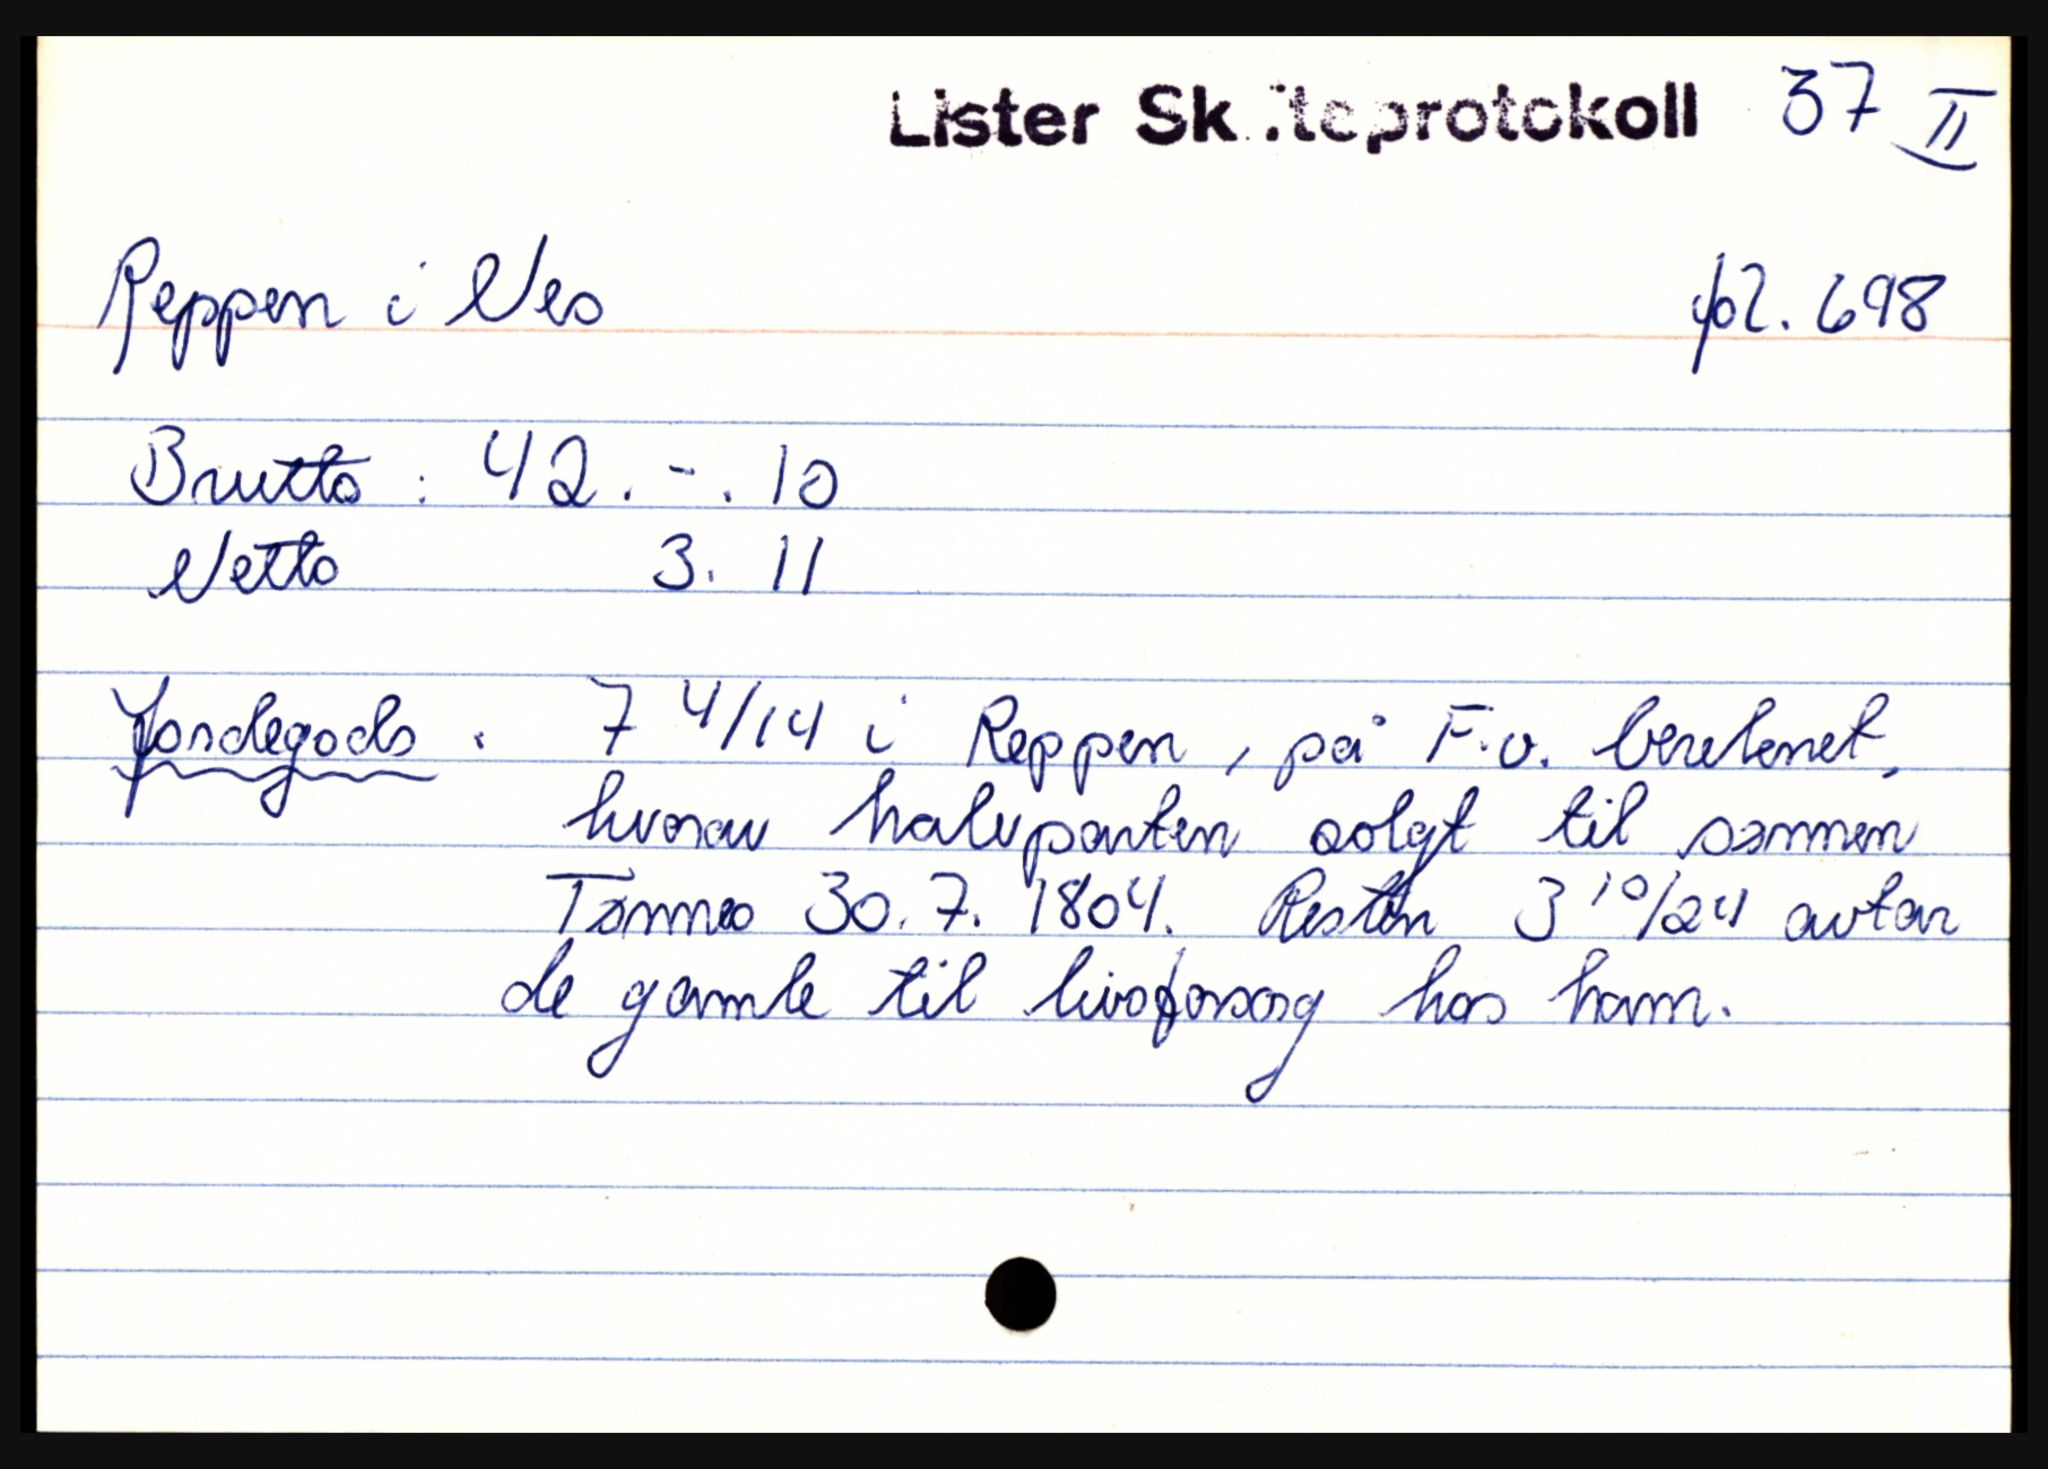 Lister Skifteprotokoll 37 II
Reppen i Nes fol. 698
Brutto : 42. - . 10
Netto 3. 11
Jordegods . 7 4/14 i Reppen, på F.v. beretenet,
hvorav halvparten solgt til sønnen
Tønnes 30.7.1804. Resten 3 10/24 avtar
de gamle til livsforsorg hos ham.